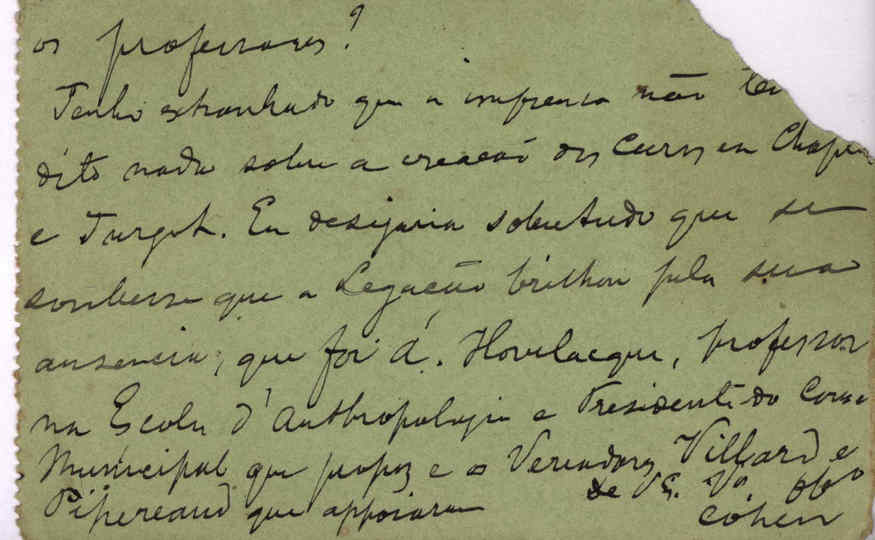 os professores?
Tenho extranhado que a imprensa não te
dito nada sobre a creacaõ dos Cursos en Chapt
e Turgot. Eu desejaria sobretudo que se
soubesse que a Legação brilhou pela sua
ausencia; que foi A. Hovelacque, professor
na Escola d'Anthropologia e Presidente do Cons
Municipal que propoz e os Vereadores Villard e
Pipereaud que appoiaram
de VS. Vor Obo
Cohen